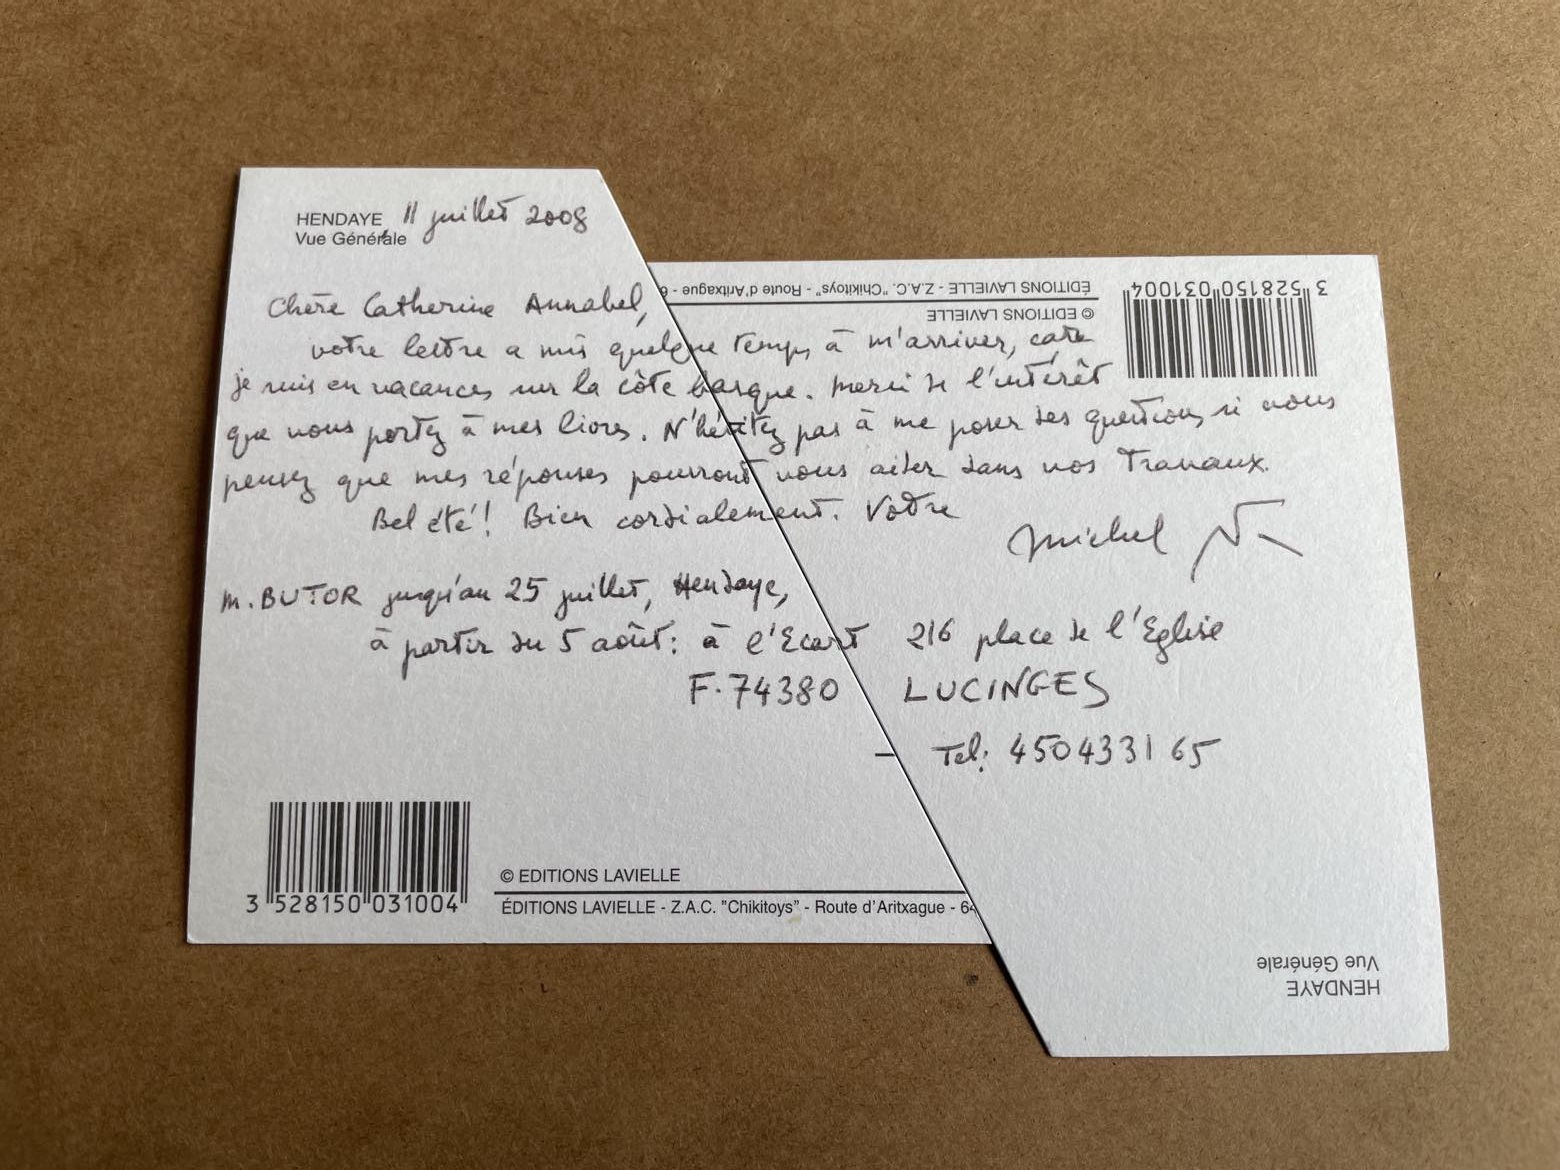 HENDAYE, 11 juillet 2008
Vue Générale
Chère Catherine Annabel,
votre lettre a mis quelque temps à m'arriver, car
je suis en vacances sur la côte basque. Merci de l'intérêt
que vous portez à mes livres. N'hésitez pas à me poser des questions si vous
pensez que mes réponses pourront vous aider dans vos travaux.
Bel été! Bien cordialement. Votre
Michel
M. BUTOR jusqu'au 25 juillet, Hendaye,
à partir du 5 août: à l'Ecart 216 place de l'Eglise
F-74380 - LUCINGES
Tel: 450433165
3 528150 031004
© EDITIONS LAVIELLE
ÉDITIONS LAVIELLE - Z.A.C. "Chikitoys" - Route d'Aritxague - 64
ÉDITIONS LAVIELLE - Z.A.C. "Chikitoys" - Route d'Aritxague - 6
© EDITIONS LAVIELLE
3 528150 031004
HENDAYE
Vue Générale